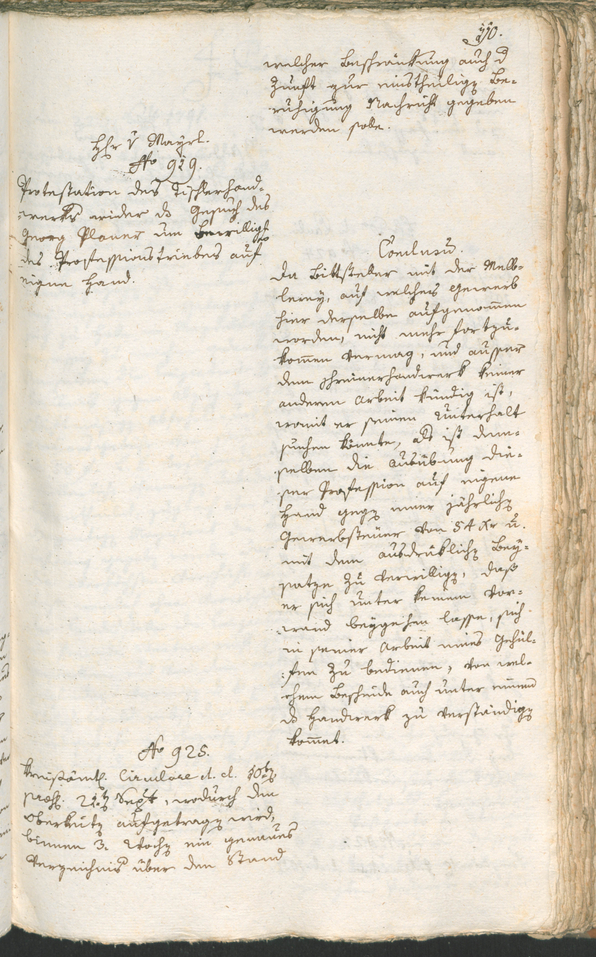 110.
welcher Beschränkung auch d
Zunft zur einstheilig Be-
ruhigung Nachricht gegeben
werden solle.
Hr v Mayrl.
No 919.
Protestation des Tischlerhand-
werks wider ds Gesuch des
Georg Planer um Bewilligg
des Professionstriebes auf
eigne Hand.
Conclusū.
Da Bittsteller mit der Melb-
lerey, auf welches Gewerb
hier derselbe aufgenommen
worden, nicht mehr fortzu-
kommen vermag, und ausser
dem Schreinerhandwerk keiner
anderen Arbeit kündig ist,
womit er seinen Unterhalt
suchen könnte, als ist dem-
selben die Ausübung die-
ser Profession auf eigene
Hand geg einer jährlich
Gewerbsteuer von 54 Xr u.
mit dem ausdrüklich Bey-
satze zu verwillig, daß
er sich unter keinem Vor-
wand beygehen lasse, sich
in seiner Arbeit eines Gehül-
fen zu bedienen, von wel-
chem Bescheide auch unter einem
ds Handwerk zu verständig
kommt.
No 925.
Kreisämtl. Circulare d. d. 10t
präs. 21t Sept, wodurch dem
aufgetrag wird,
binnen 3. Woch ein genaues
Verzeichnis über den Stand